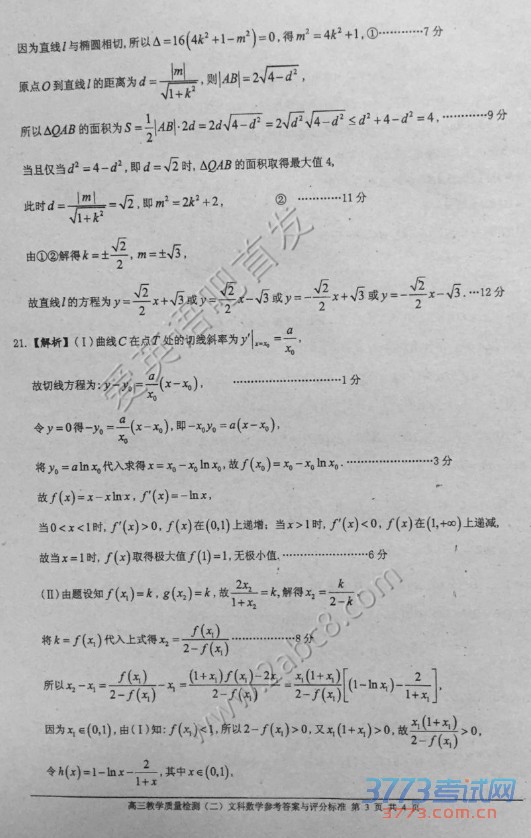 因为直线l与椭圆相切,所以Δ=16(4k²+1-m²)=0,得m²=4k²+1,①…………7分
原点O到直线l的距离为d=|m|/√(1+k²),则|AB|=2√(4-d²),
所以ΔQAB的面积为S=1/2|AB|·2d=2d√(4-d²)=2√d²√(4-d²)≤d²+4-d²=4,…………9分
当且仅当d²=4-d²,即d=√2时,ΔQAB的面积取得最大值4,
此时d=|m|/√(1+k²)=√2,即m²=2k²+2, ② …………11分
由①②解得k=±√2/2,m=±√3,
故直线l的方程为y=√2/2x+√3或y=√2/2x-√3或y=-√2/2x+√3或y=-√2/2x-√3.…12分
21.【解析】(Ⅰ)曲线C在点T处的切线斜率为y'|x=x₀=a/x₀,
故切线方程为:y-y₀=a/x₀(x-x₀), …………………………1分
令y=0得-y₀=a/x₀(x-x₀),即-x₀y₀=a(x-x₀),
将y₀=alnx₀代入求得x=x₀-x₀lnx₀,故f(x₀)=x₀-x₀lnx₀.……………………3分
故f(x)=x-xlnx,f'(x)=-lnx,
当0<x<1时,f'(x)>0,f(x)在(0,1)上递增;当x>1时,f'(x)<0,f(x)在(1,+∞)上递减,
故当x=1时,f(x)取得极大值f(1)=1,无极小值.……………………6分
(Ⅱ)由题设知f(x₁)=k,g(x₂)=k,故2x₂/(1+x₂)=k,解得x₂=k/(2-k)
将k=f(x₁)代入上式得x₂=f(x₁)/(2-f(x₁))………………8分
所以x₂-x₁=f(x₁)/(2-f(x₁))-x₁=((1+x₁)f(x₁)-2x₁)/(2-f(x₁))=x₁(1+x₁)/(2-f(x₁))[(1-lnx₁)-2/(1+x₁)],
因为x₁∈(0,1),由(Ⅰ)知:f(x₁)<1,所以2-f(x₁)>0,又x₁(1+x₁)>0,故x₁(1+x₁)/(2-f(x₁))>0,
令h(x)=1-lnx-2/(1+x),其中x∈(0,1),
高三教学质量检测(二)文科数学参考答案与评分标准 第 3 页 共 4 页
爱英语吧首发
www.2abc8.com
3773考试网
www.3773.com.cn